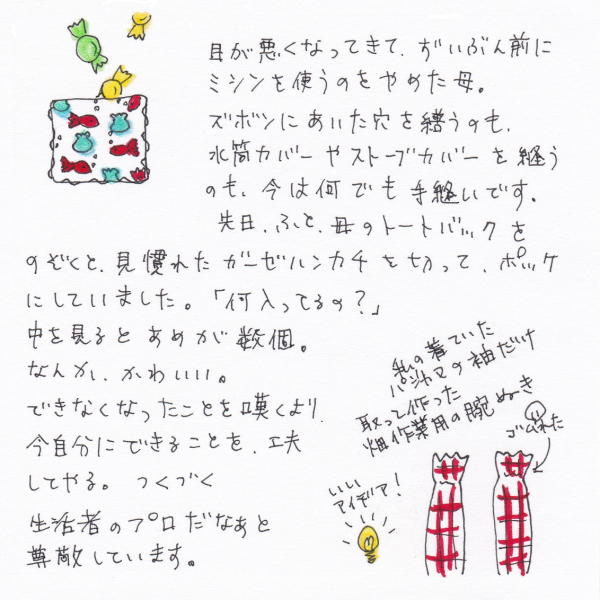 目が悪くなってきて、ずいぶん前に
ミシンを使うのをやめた母。
ズボンにあいた穴を繕うのも、
水筒カバーやストーブカバーを縫う
のも、今は何でも手縫いです。
先日、ふと、母のトートバックを
のぞくと、見慣れたガーゼハンカチを切って、ポッケ
にしていました。「何入ってるの?」
中を見るとあめが数個。
なんか、かわいい。
できなくなったことを嘆くより、
今自分にできることを、工夫
してやる。つくづく
生活者のプロだなぁと
尊敬しています。
私の着ていた
パジャマの袖だけ
取って作った
畑作業用の腕ぬき
ゴム入れた
いい
アイデア!